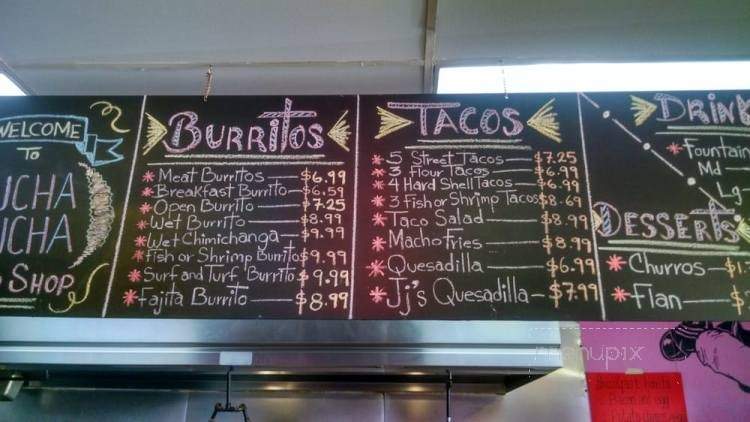 WELCOME
TO
UCHA
UCHA
SHOP
BURRITOS
Meat Burritos $6.99
Breakfast Burrito $6.59
Open Burrito $7.25
Wet Burrito $8.99
Wet Chimichanga $9.99
Fish or Shrimp Burrito $9.99
Surf and Turf Burrito $9.99
Fajita Burrito $8.99
TACOS
5 Street Tacos $7.25
3 flour Tacos $6.99
4 Hard Shell Tacos $6.99
3 Fish or Shrimp Tacos $8.69
Taco Salad $8.99
Macho Fries $8.99
Quesadilla $6.99
Jj's Quesadilla $7.99
DRINK
Fountain
Md
Lg
DESSERTS
Churros $1.
Flan $
menupix